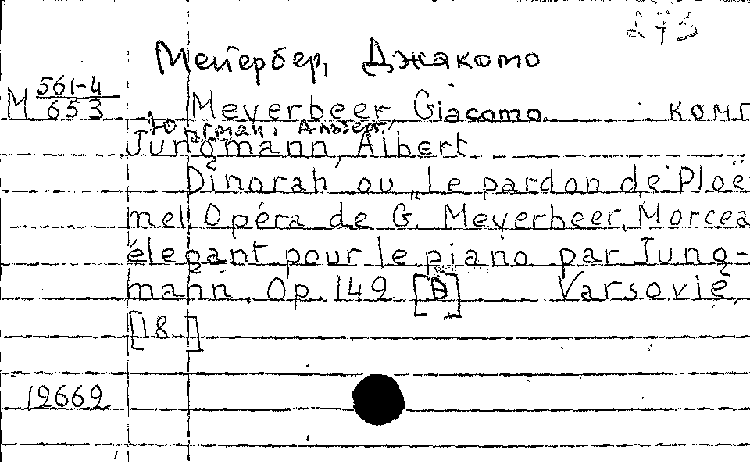 273
Мейербер, Джакомо
М 561-4
653
Meyerbeer Giacomo комп
Юнгман, Альбер
Jungmann, Albert
Dinorah ou „Le pardon de Ploë
mel Opéra de G. Meyerbeer. Morcea
élegant pour le piano par Jung-
mann, Op. 149 [B] Varsovie,
[18 ]
12669